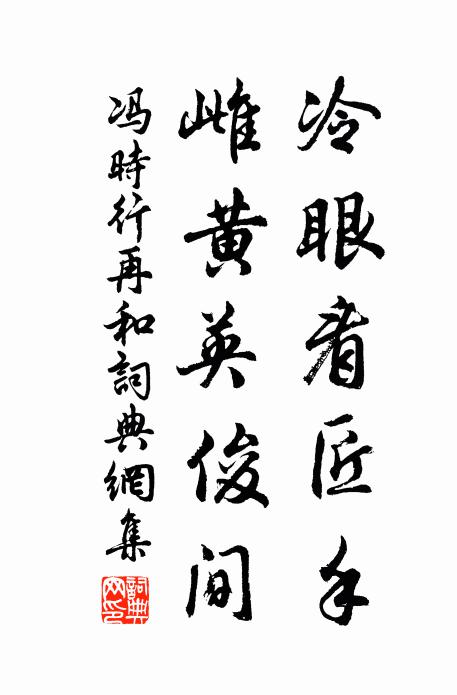 冷眼看匠手
雌黄英俊间
冯時行再和詞典網集
詞典網印